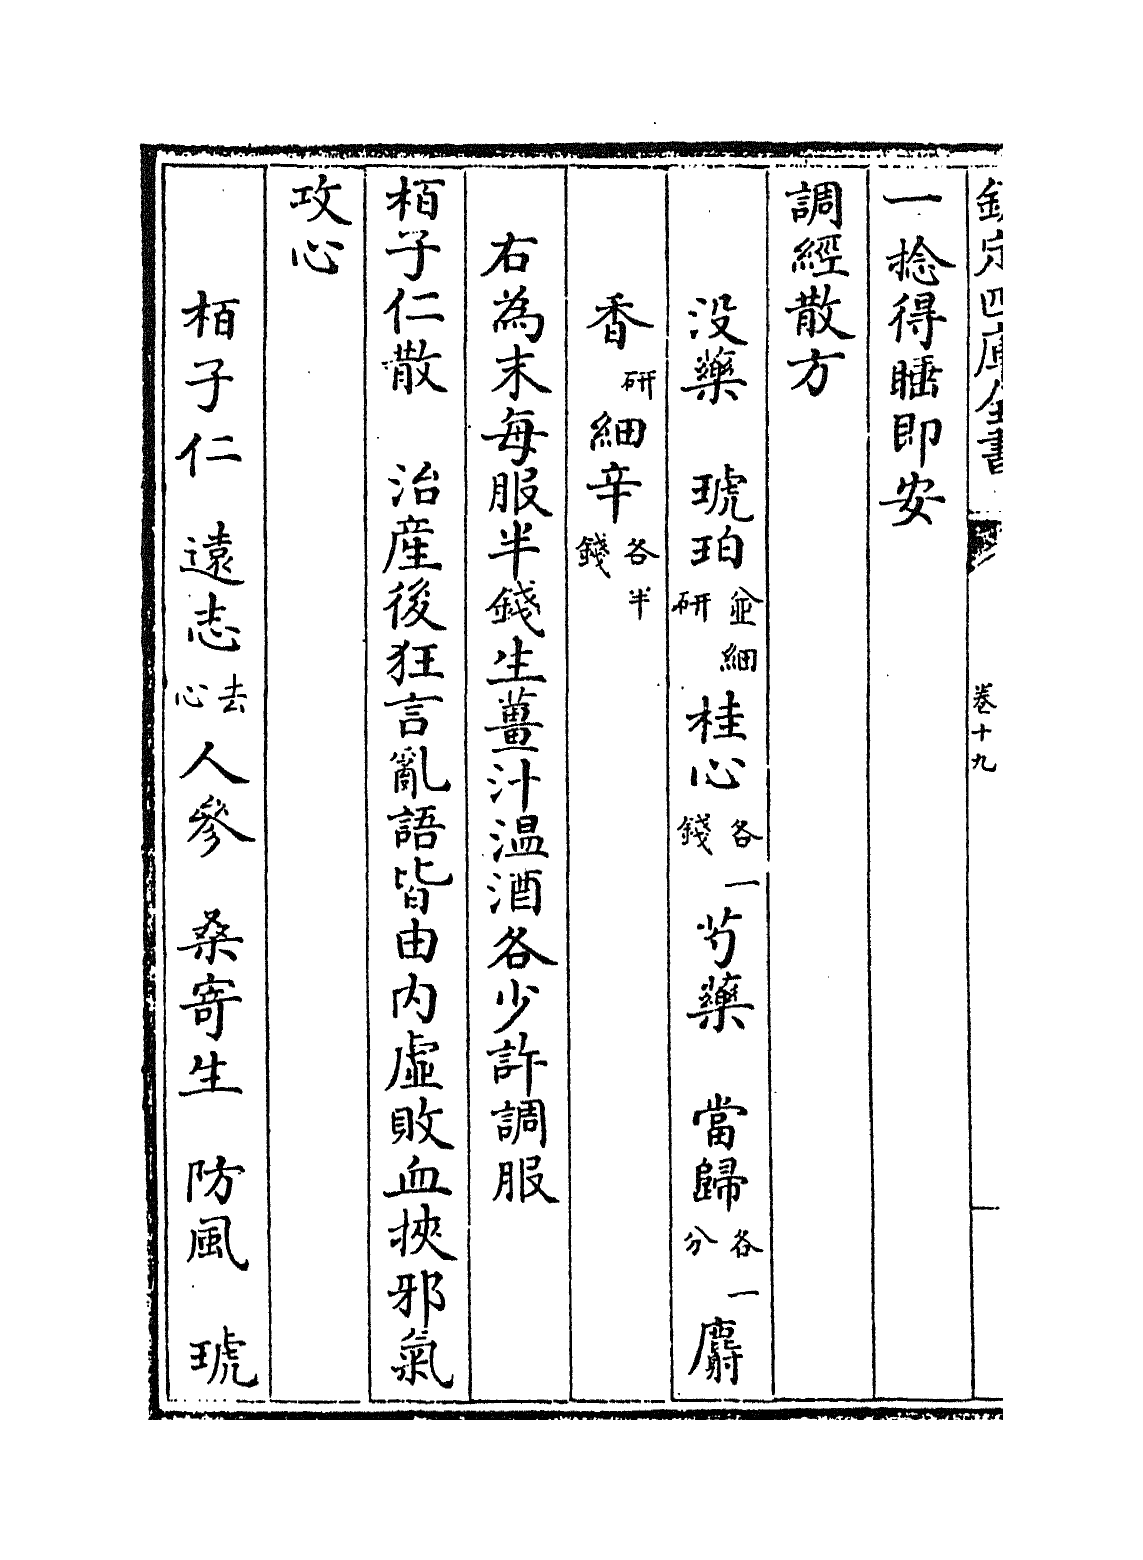 欽定四庫全書
卷十九
一捻得睡即安
調經散方
没藥　琥珀並細研桂心各一錢芍藥　當歸各一分麝
香研細辛各半錢
右為末每服半錢生薑汁温酒各少許調服
栢子仁散　治産後狂言亂語皆由内虚敗血挾邪氣
攻心
栢子仁　遠志去心人參　桑寄生　防風　琥